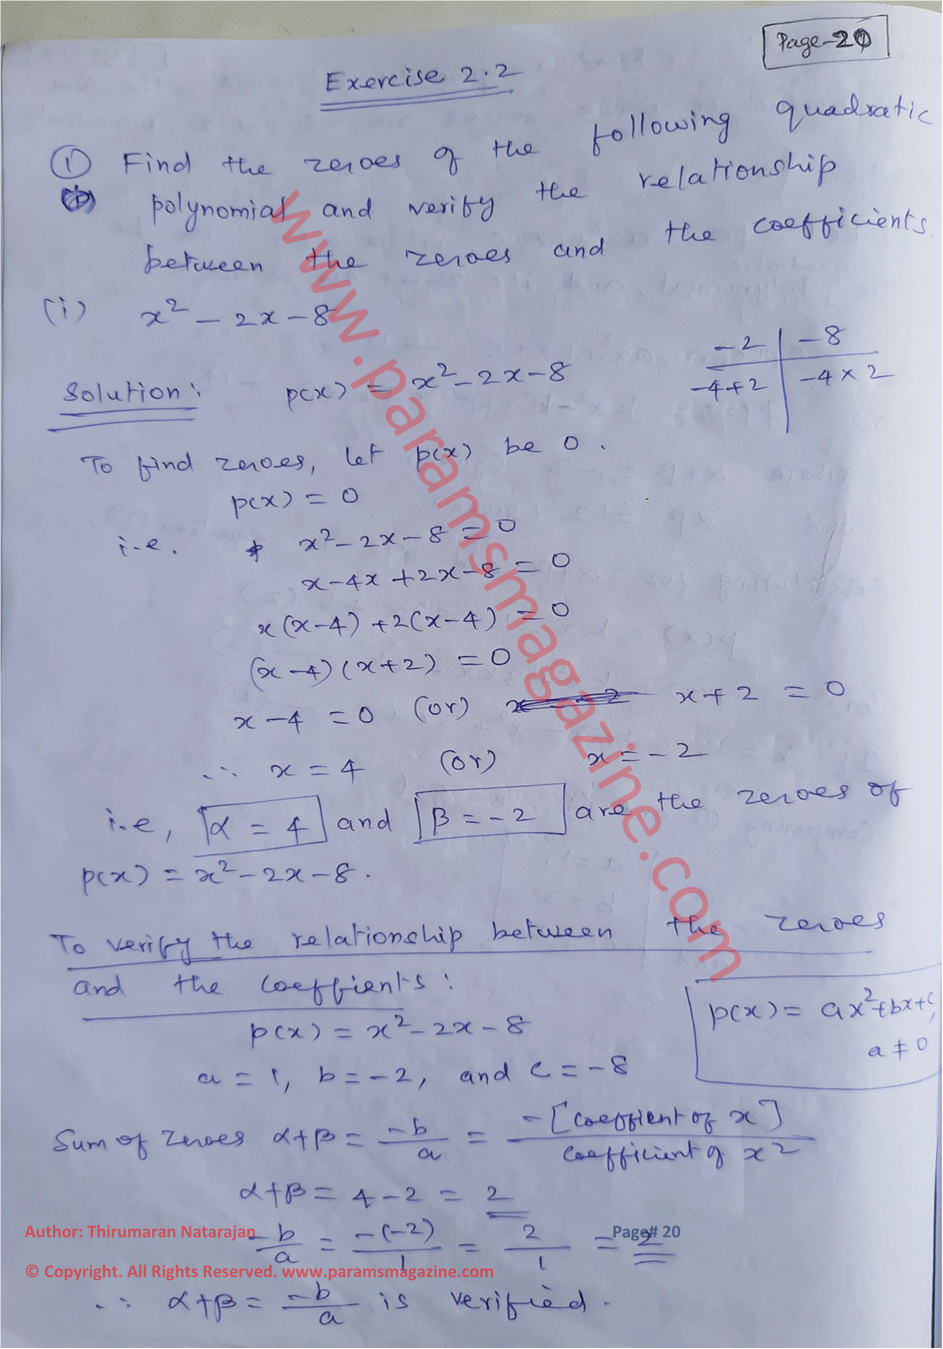 Page-20
Exercise 2.2
① Find the zeroes of the following quadratic
polynomial and verify the relationship
between the zeroes and the coefficients.
(i) x² - 2x - 8
-2 | -8
-4+2 | -4 × 2
Solution: p(x) = x² - 2x - 8
To find zeroes, let p(x) be 0.
p(x) = 0
i.e. x² - 2x - 8 = 0
x - 4x + 2x - 8 = 0
x(x-4) + 2(x-4) = 0
(x-4)(x+2) = 0
x - 4 = 0 (or) x + 2 = 0
∴ x = 4 (or) x = -2
i.e, α = 4 and β = -2 are the zeroes of
p(x) = x² - 2x - 8.
To verify the relationship between the zeroes
and the coeffients:
p(x) = ax² + bx + c,
a ≠ 0
p(x) = x² - 2x - 8
a = 1, b = -2, and c = -8
Sum of zeroes α+β = -b/a = -[coeffient of x]/coefficient of x²
α+β = 4 - 2 = 2
-b/a = -(-2)/1 = 2/1 = 2
∴ α+β = -b/a is verified.
www.paramsmagazine.com
Author: Thirumaran Natarajan Page# 20
© Copyright. All Rights Reserved. www.paramsmagazine.com